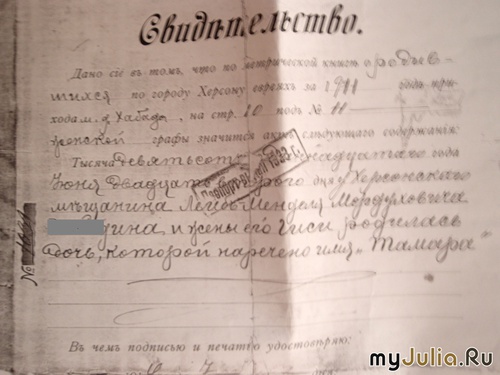 Свидѣтельство.
Дано сіе въ томъ, что по метрической книгѣ о родив
шихся по городу Херсону евреяхъ за 1911 годъ при
хода м. д. Хабадъ, на стр. 10 подъ № 11
женской графы значится актъ слѣдующаго содержанія:
Тысяча девятьсотъ надцатаго года
Іюня двадцать дня у Херсонскаго
мѣщанина Лейбъ-Менделя Мордуховича
гина и жены его Гиси родилась
дочь, которой наречено имя „Тамара“
Въ чемъ подписью и печатью удостовѣряю:
№ 
myJulia.Ru